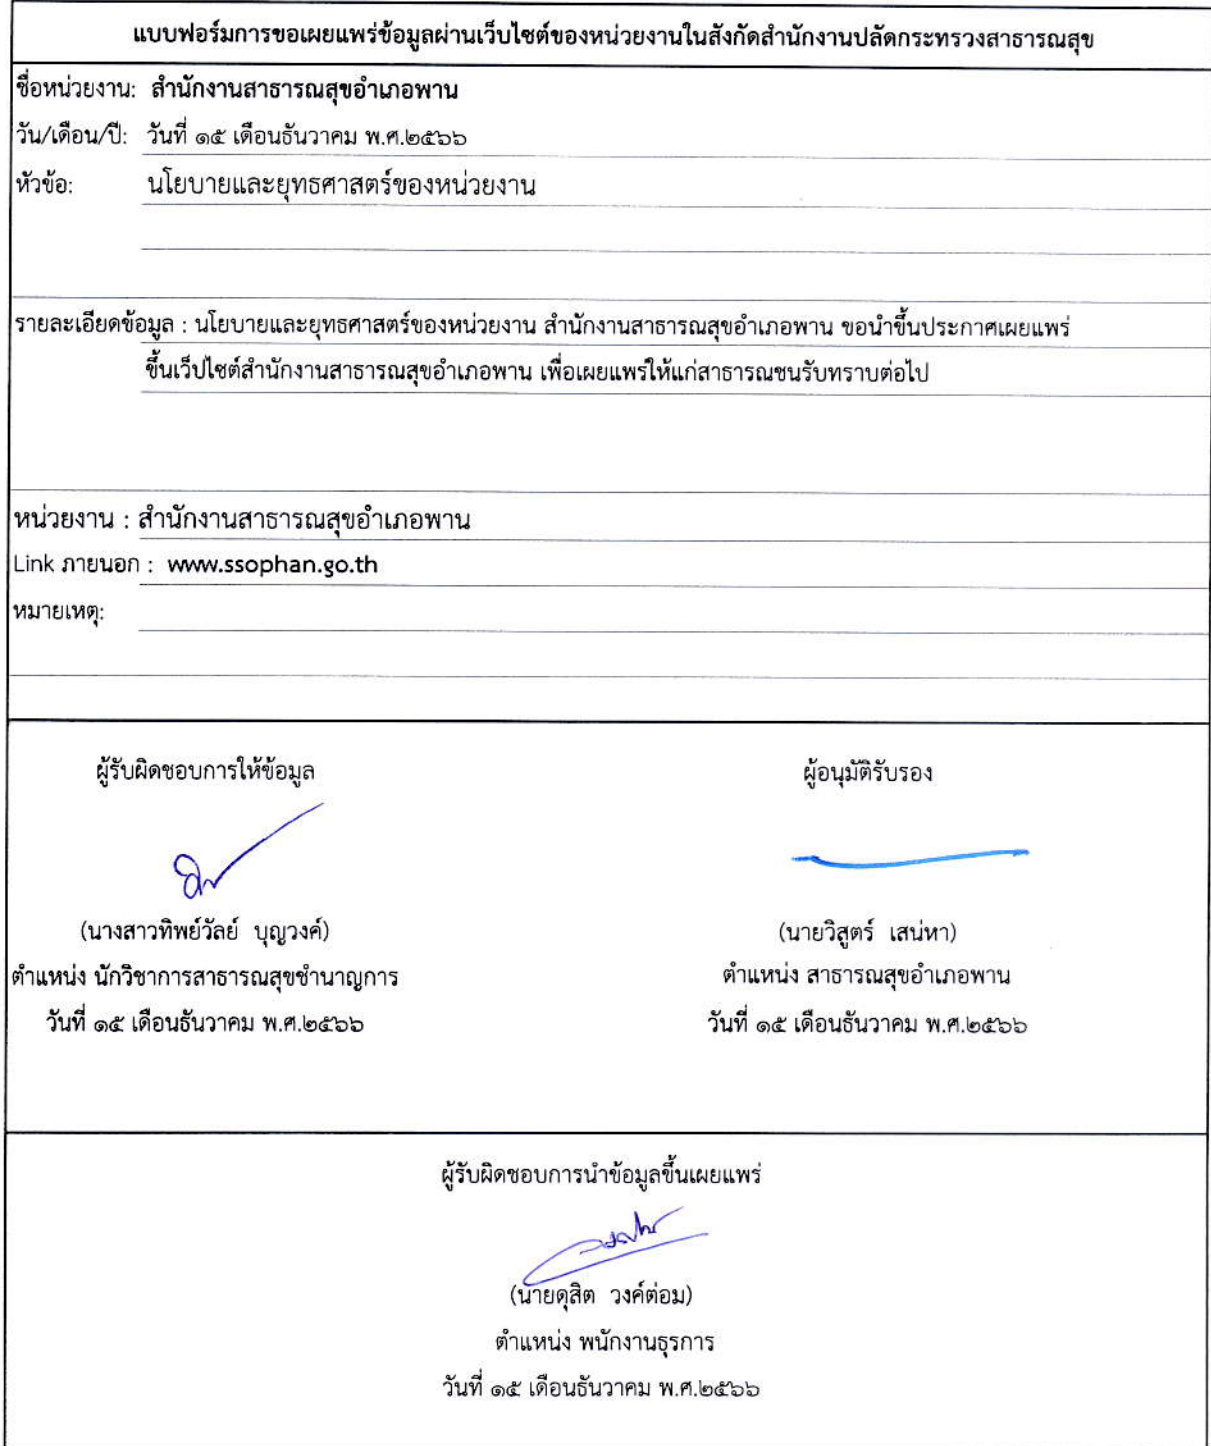 แบบฟอร์มการขอเผยแพร่ข้อมูลผ่านเว็บไซต์ของหน่วยงานในสังกัดสำนักงานปลัดกระทรวงสาธารณสุข
ชื่อหน่วยงาน: สำนักงานสาธารณสุขอำเภอพาน
วัน/เดือน/ปี: วันที่ ๑๕ เดือนธันวาคม พ.ศ.๒๕๖๖
หัวข้อ: นโยบายและยุทธศาสตร์ของหน่วยงาน
รายละเอียดข้อมูล : นโยบายและยุทธศาสตร์ของหน่วยงาน สำนักงานสาธารณสุขอำเภอพาน ขอนำขึ้นประกาศเผยแพร่
ขึ้นเว็ปไซต์สำนักงานสาธารณสุขอำเภอพาน เพื่อเผยแพร่ให้แก่สาธารณชนรับทราบต่อไป
หน่วยงาน : สำนักงานสาธารณสุขอำเภอพาน
Link ภายนอก : www.ssophan.go.th
หมายเหตุ:
ผู้รับผิดชอบการให้ข้อมูล
(นางสาวทิพย์วัลย์ บุญวงค์)
ตำแหน่ง นักวิชาการสาธารณสุขชำนาญการ
วันที่ ๑๕ เดือนธันวาคม พ.ศ.๒๕๖๖
ผู้อนุมัติรับรอง
(นายวิสูตร์ เสน่หา)
ตำแหน่ง สาธารณสุขอำเภอพาน
วันที่ ๑๕ เดือนธันวาคม พ.ศ.๒๕๖๖
ผู้รับผิดชอบการนำข้อมูลขึ้นเผยแพร่
(นายดุสิต วงค์ต่อม)
ตำแหน่ง พนักงานธุรการ
วันที่ ๑๕ เดือนธันวาคม พ.ศ.๒๕๖๖